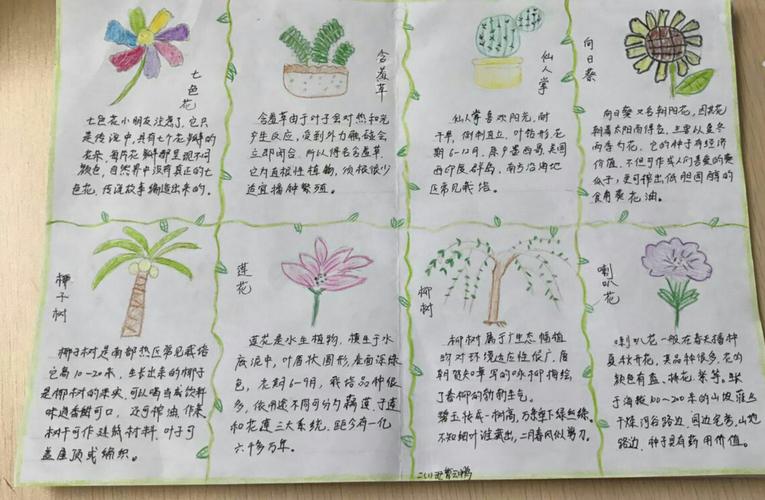 七色花
七色花小朋友注意了,它只
是传说中,具有七个花瓣的
花朵,每片花瓣都呈现不同
颜色,自然界中没有真正的七
色花,传说故事编造出来的。
含羞草
含羞草由于叶子会对热和光
产生反应,受到外力触碰会
立即闭合,所以得名含羞草。
它为直根性植物,须根很少
适宜播种繁殖。
仙人掌
仙人掌喜欢阳光,耐
干旱,倒刺直立,叶钻形,花
期6-12月,原产墨西哥,美国
西印度群岛,南方沿海地
区常见栽培。
向日葵
向日葵又名朝阳花,因其花
朝着太阳而得名,
而享誉名。它的种子有经济
价值,不但可作成人们喜爱的葵
瓜子,更可榨出低胆固醇的
食用葵花油。
椰子树
椰子树是南部热区常见栽培
它高10-20米,生长出来的椰子
是椰树的果实,可以喝当成饮料
味道香甜可口,还可榨油,作菜
树干可作建筑材料,叶子可
盖屋顶或编织。
莲花
莲花是水生植物,横生于水
底泥中,叶盾状圆形,表面深绿
色,花期6-9月,栽培品种很
多,依用途不同可分为藕莲,子莲
和花莲三大系统,距今有一亿
六千多万年。
柳树
柳树属于广生态幅植
物对环境适应性很广,唐
朝贺知章写的咏柳描绘
了春柳的勃勃生气。
碧玉妆成一树高,万条垂下绿丝绦。
不知细叶谁裁出,二月春风似剪刀。
喇叭花
喇叭花一般在春天播种
夏秋开花,其品种很多,花的
颜色有蓝、绯花、紫等。生长
于海拔100~200米的山坡灌丛
干燥河谷路边、园边宅旁、山地
路边,种子具有药用价值。